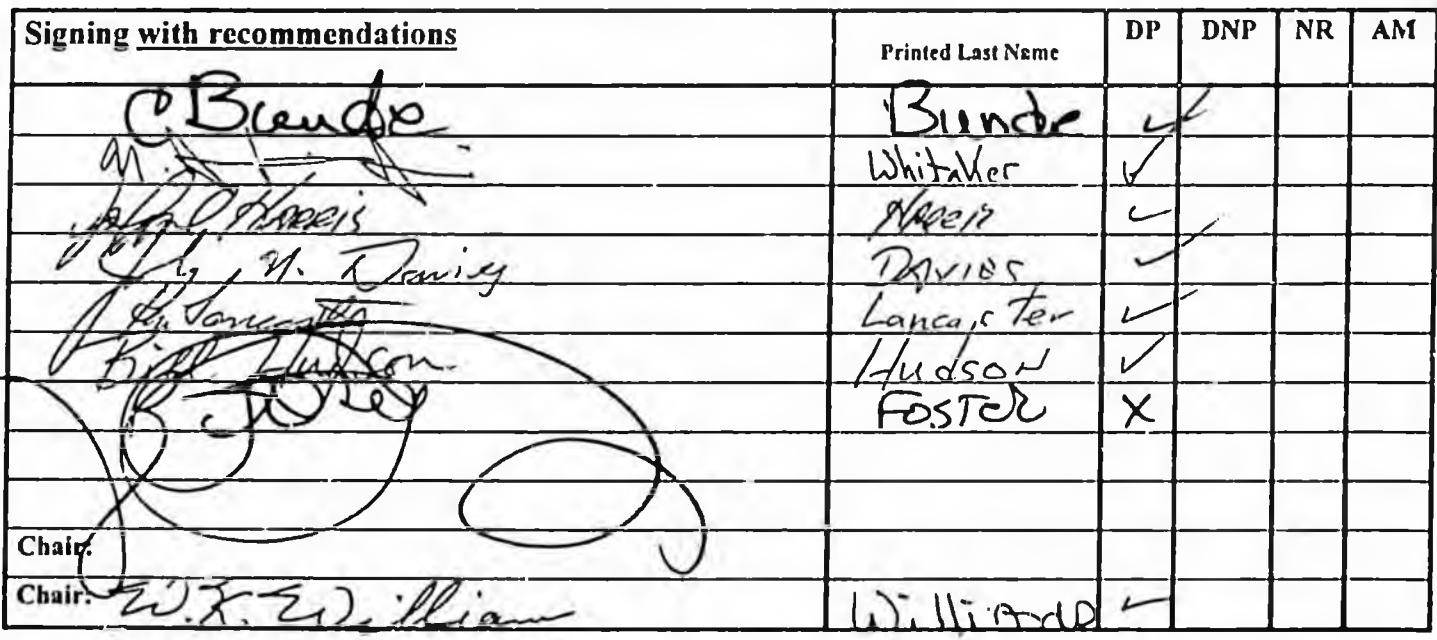 Signing with recommendations Printed Last Name DP DNP NR AM
C Bunde Bunde ✓
M. Whitaker ✓
John Harris Harris ✓
N. Davies Davies ✓
Lancaster Lancaster ✓
Bill Hudson Hudson ✓
R Foster Foster X
Chair:
Chair: W.K. William Williams ✓